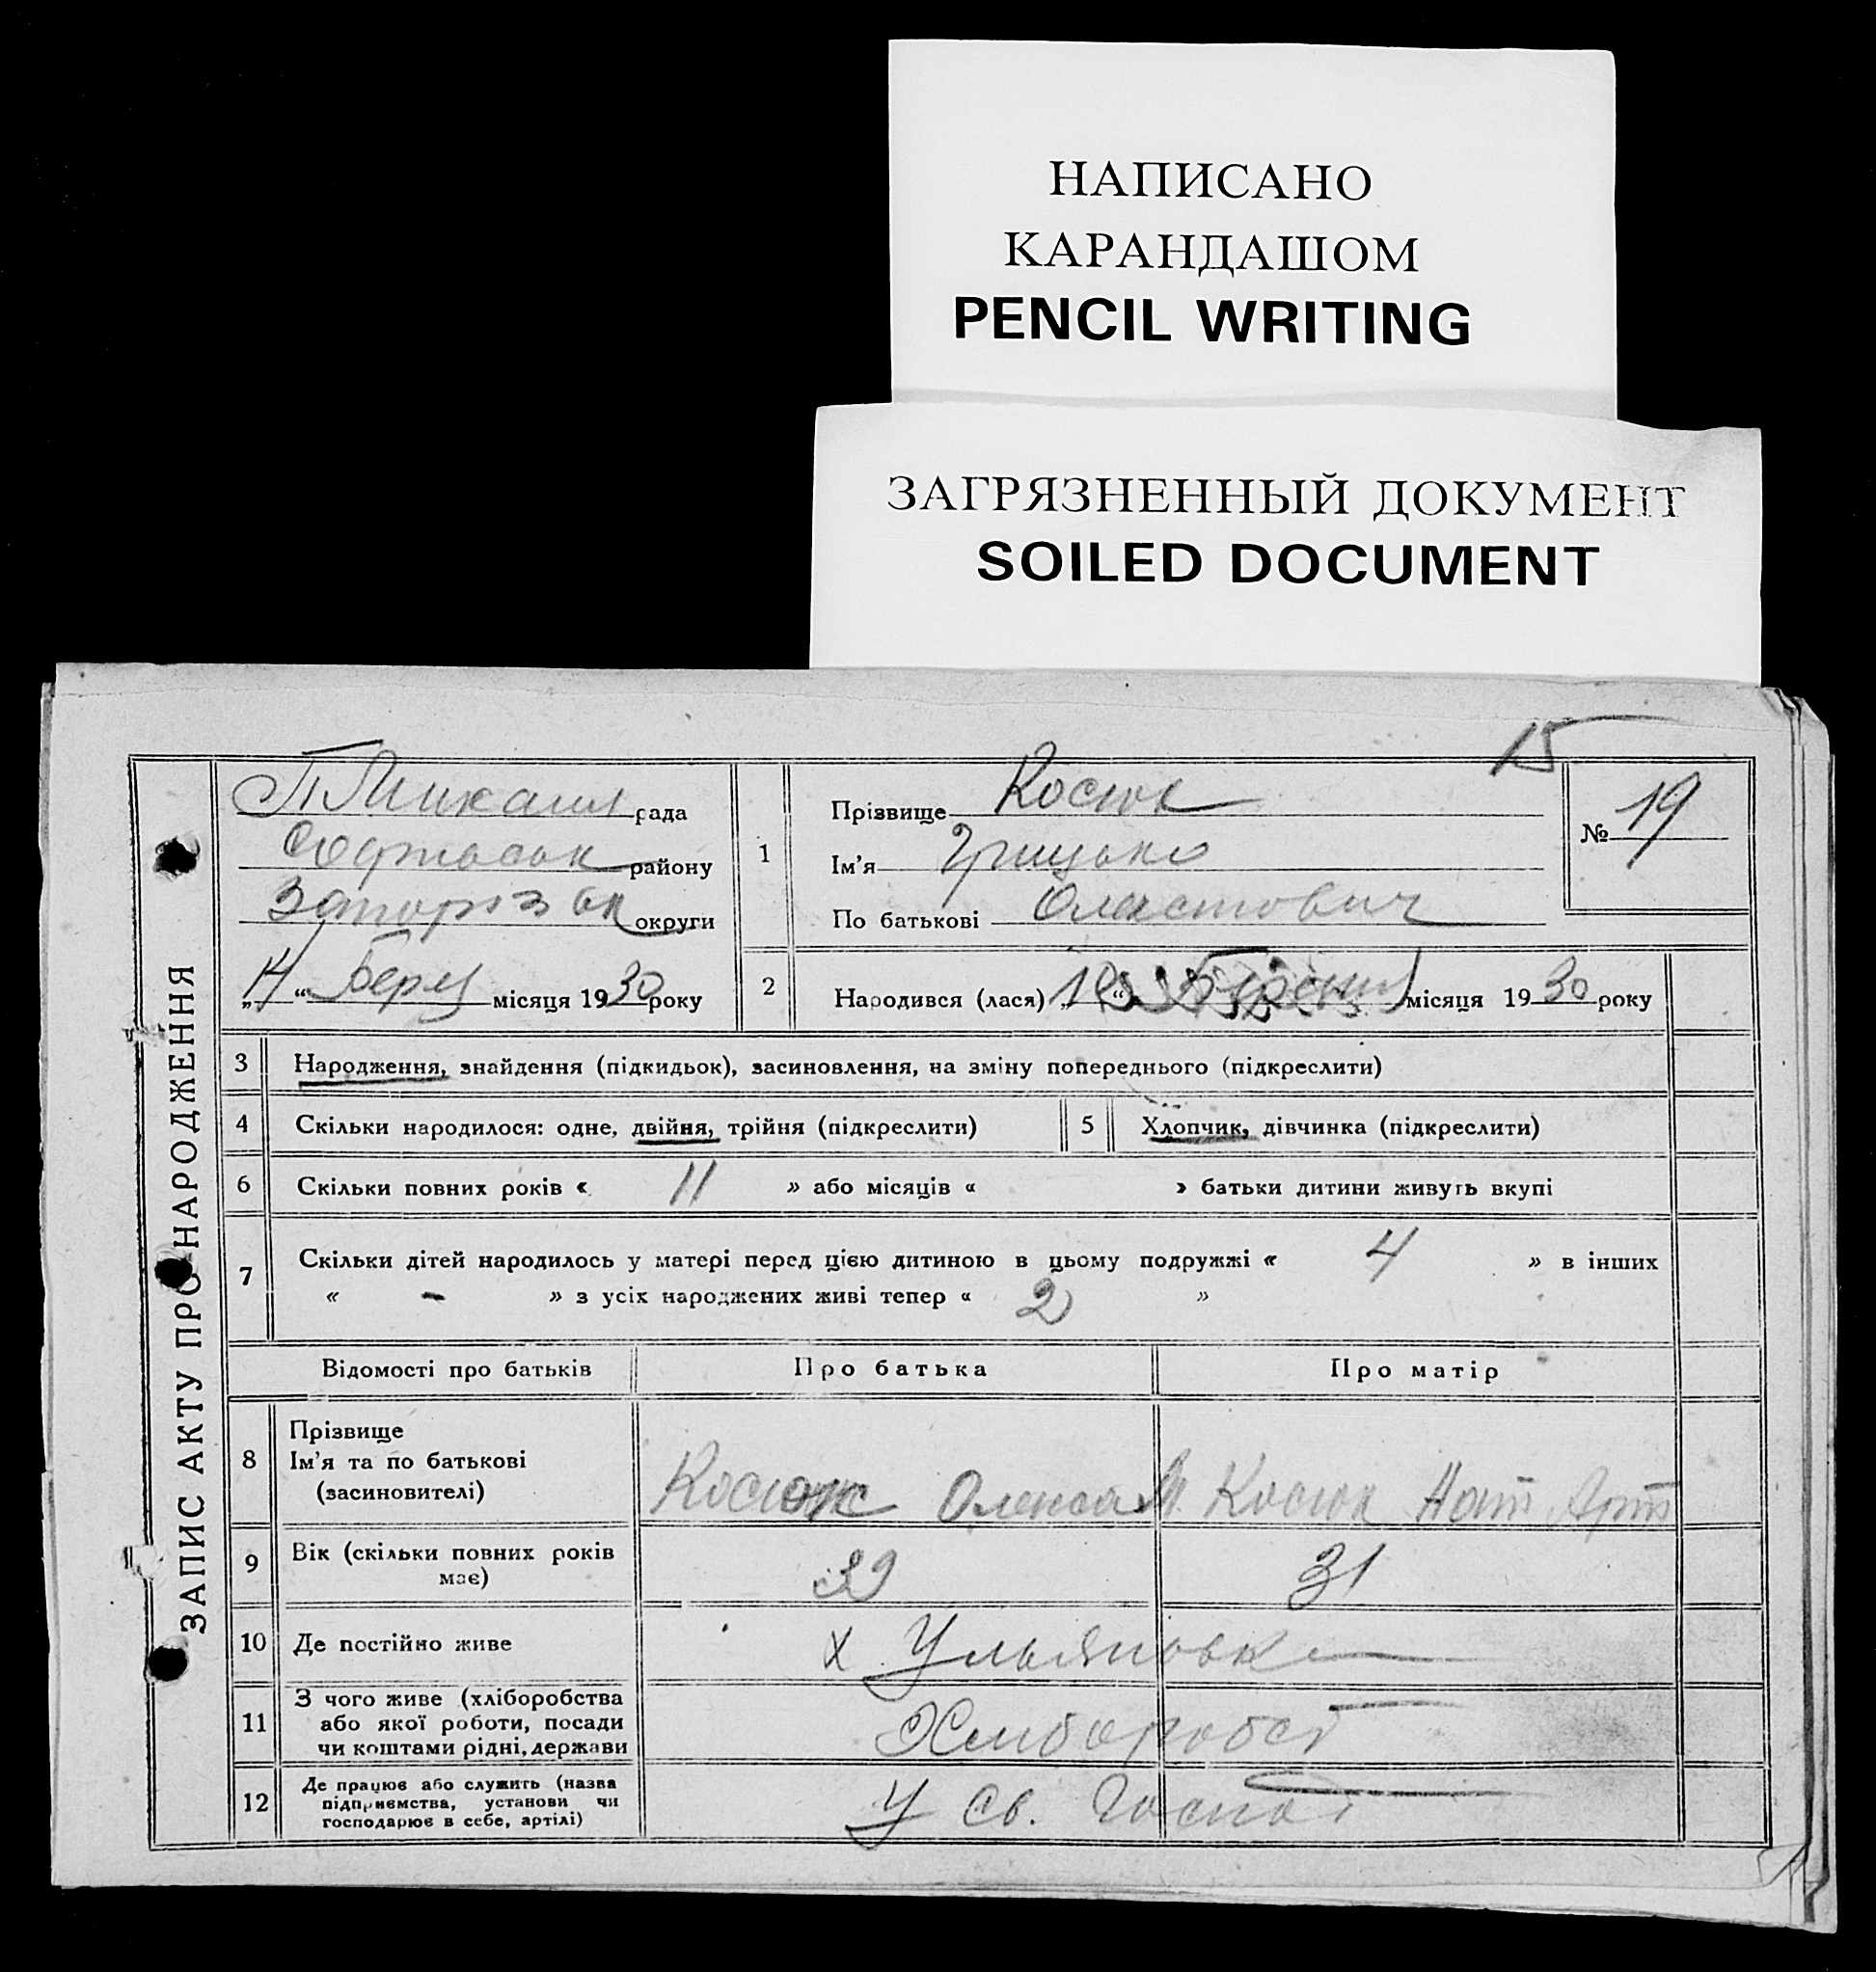 НАПИСАНО
КАРАНДАШОМ
PENCIL WRITING
ЗАГРЯЗНЕННЫЙ ДОКУМЕНТ
SOILED DOCUMENT
15
ЗАПИС АКТУ ПРО НАРОДЖЕННЯ
рада
району
Запорізьк округи
„14“ Берез місяця 1930 року
1
Прізвище Косюк
Ім'я Грицько
По батькові
№ 19
2
Народився (лася) „ “ місяця 1930 року
3 Народження, знайдення (підкидьок), засиновлення, на зміну попереднього (підкреслити)
4 Скільки народилося: одне, двійня, трійня (підкреслити) 5 Хлопчик, дівчинка (підкреслити)
6 Скільки повних років « 11 » або місяців « » батьки дитини живуть вкупі
7 Скільки дітей народилось у матері перед цією дитиною в цьому подружжі « 4 » в інших
« - » з усіх народжених живі тепер « 2 »
Відомості про батьків Про батька Про матір
8 Прізвище
Ім'я та по батькові
(засиновителі)
Косюк Олекса М. Косюк Нат Арт
9 Вік (скільки повних років
має)
39 31
10 Де постійно живе х Ульяновка
11 З чого живе (хліборобства
або якої роботи, посади
чи коштами рідні, держави
Хліборобст
12 Де працює або служить (назва
підприємства, установи чи
господарює в себе, артілі)
У св. Господ